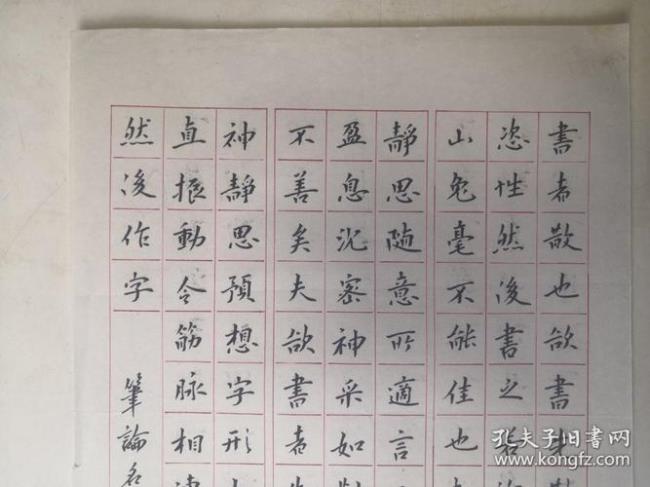 書者散也欲書
恣性然後書之若
山兔毫不能佳也
靜思随意所適言
盈息沉密神采如對
不善矣夫欲書者先
神静思預想字形
直振動令筋脉相連
然後作字
筆論名
孔夫子旧书网
www.kongfz.com